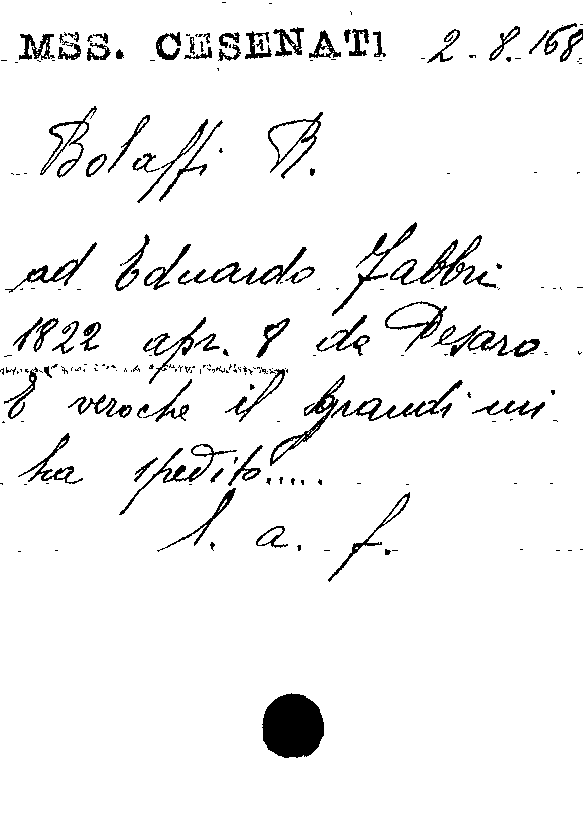 MSS. CESENATI 2.8.168
Bolaffi B.
ad Eduardo Fabbri
1822 apr. 8 da Pesaro
È vero che il Grandi mi
ha spedito.....
l. a. f.